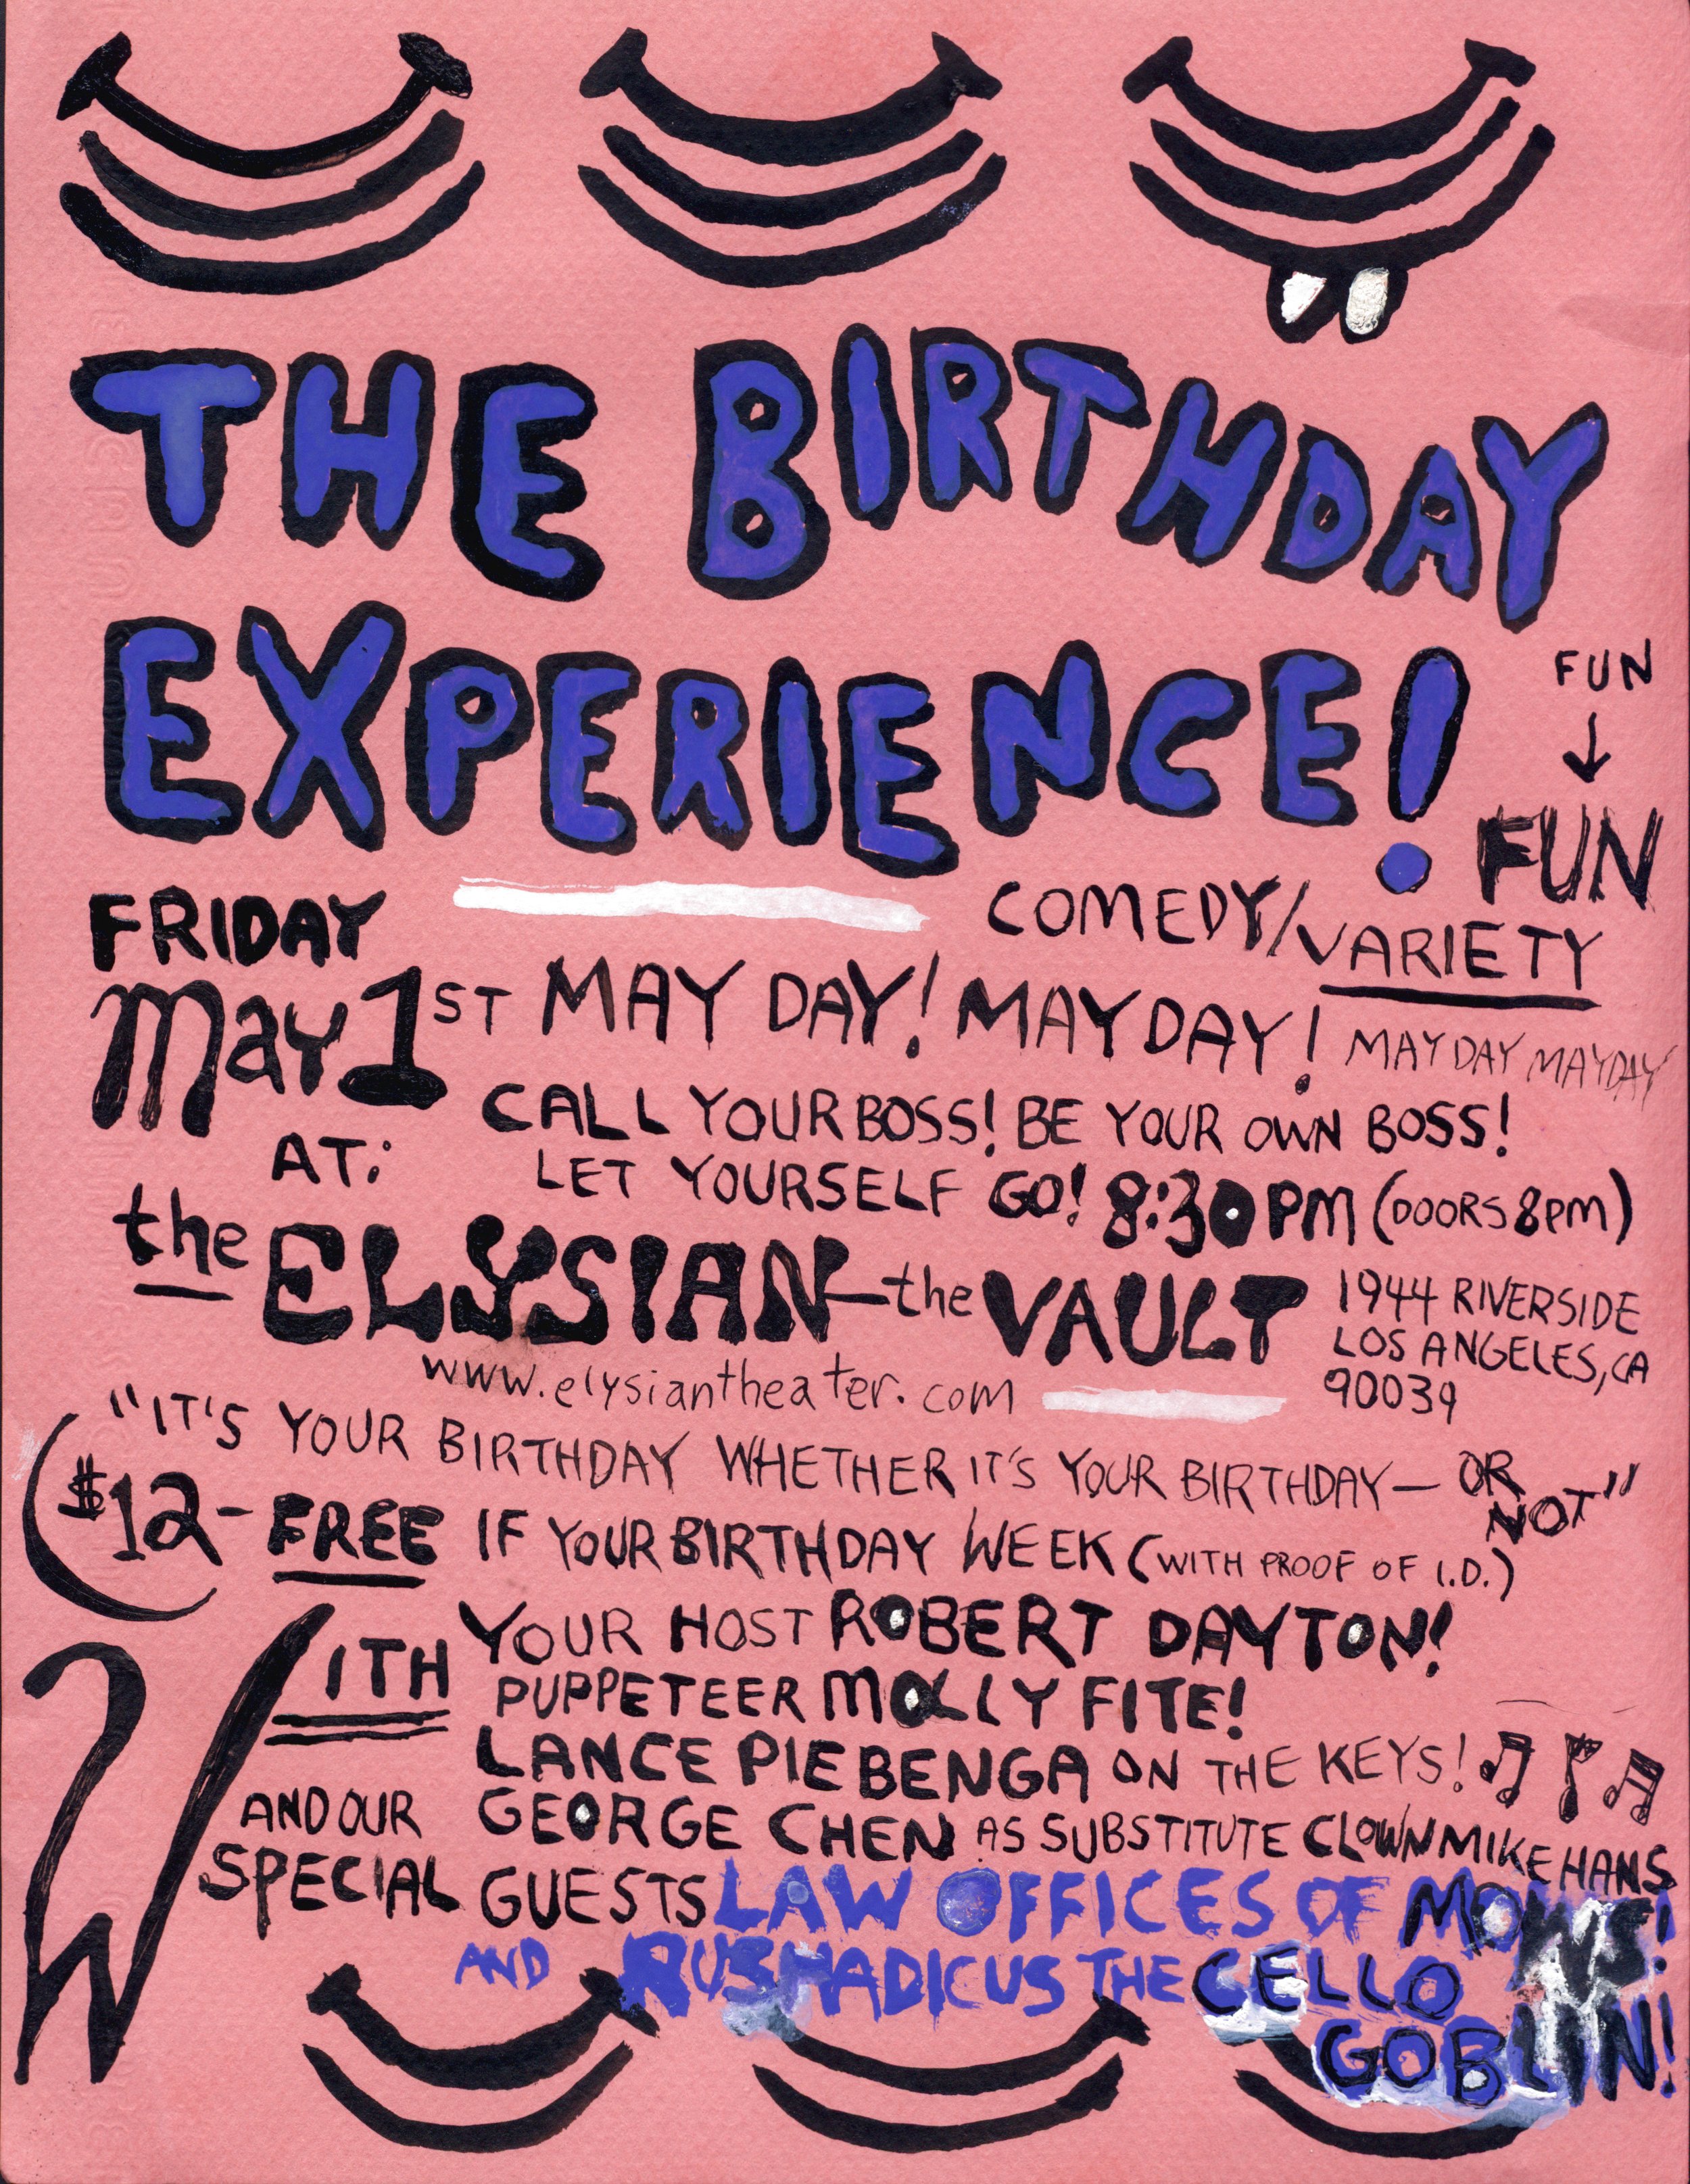 THE BIRTHDAY
EXPERIENCE!
FUN
FUN
COMEDY/VARIETY
FRIDAY
May 1ST MAY DAY! MAYDAY! MAYDAY MAYDAY
CALL YOUR BOSS! BE YOUR OWN BOSS!
AT: LET YOURSELF GO! 8:30 PM (DOORS 8PM)
the ELYSIAN - the VAULT
1944 RIVERSIDE
LOS ANGELES, CA
90039
www.elysiantheater.com
"IT'S YOUR BIRTHDAY WHETHER IT'S YOUR BIRTHDAY - OR NOT"
($12 - FREE IF YOUR BIRTHDAY WEEK (WITH PROOF OF I.D.)
WITH YOUR HOST ROBERT DAYTON!
PUPPETEER MOLLY FITE!
LANCE PIEBENGA ON THE KEYS!
GEORGE CHEN AS SUBSTITUTE CLOWN MIKE HANS
AND OUR
SPECIAL GUESTS LAW OFFICES OF MOWS!
AND RUSHADICUS THE CELLO
GOBLIN!